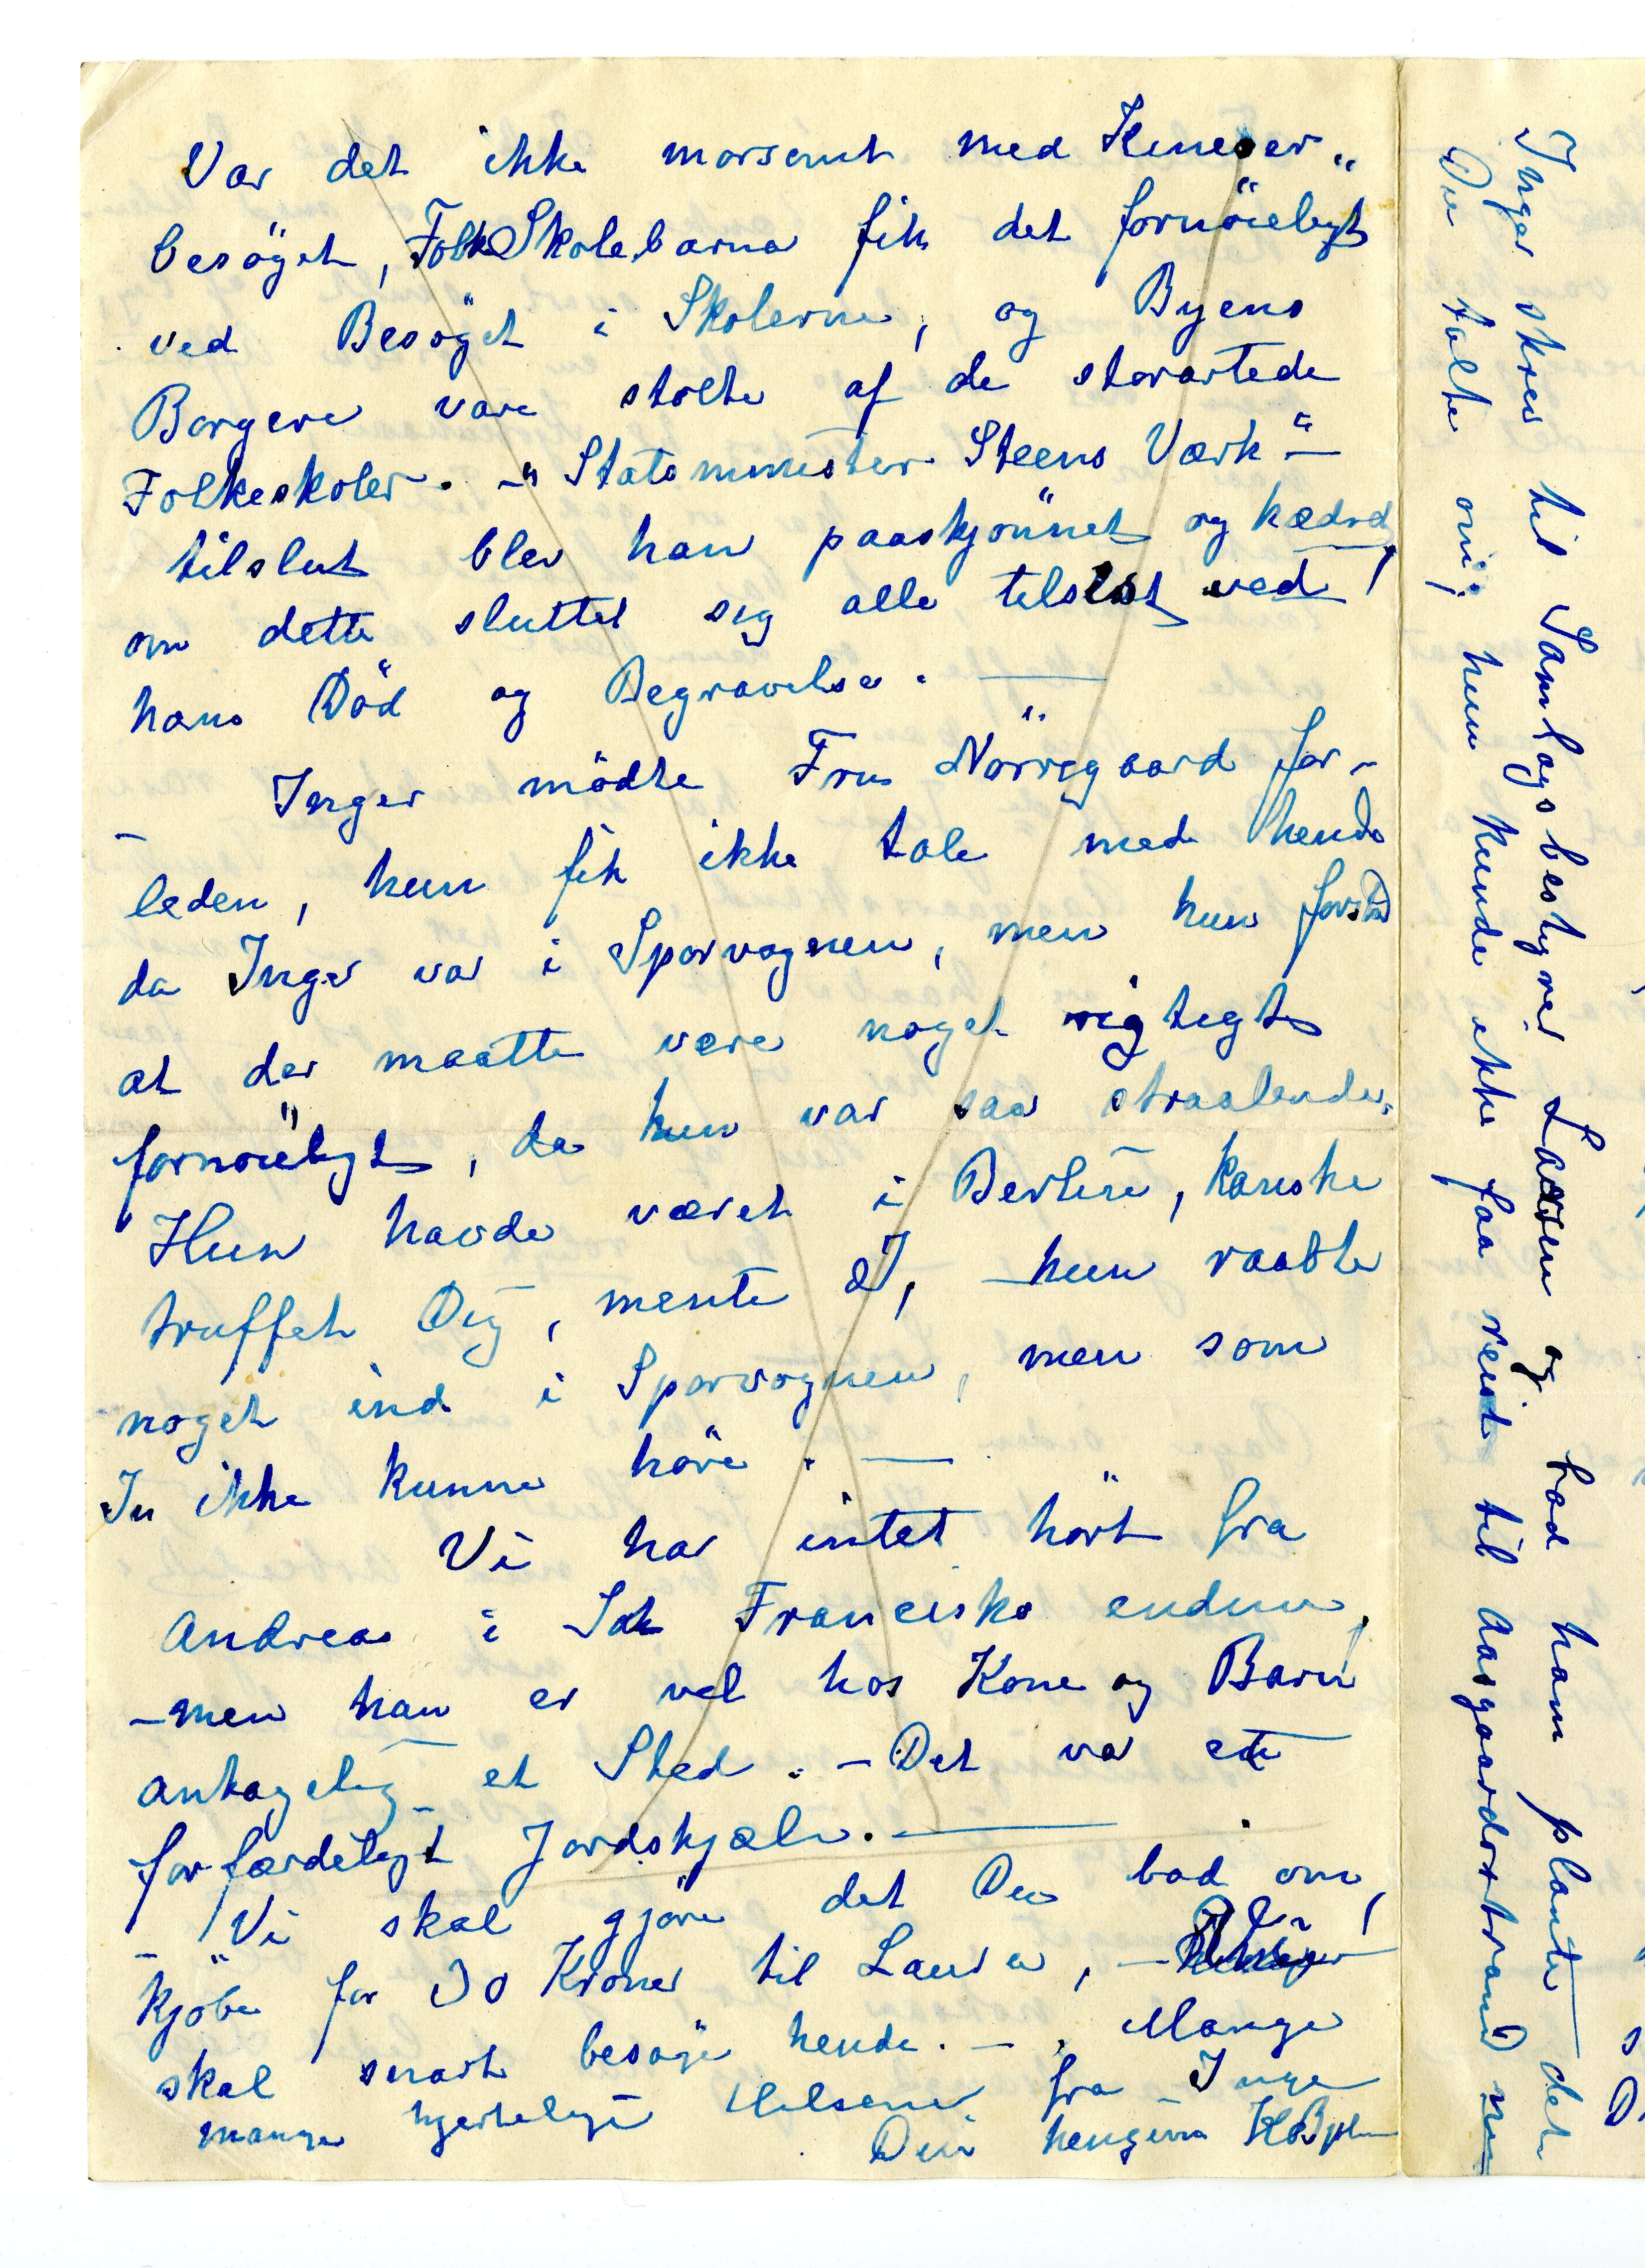 Var det ikke morsomt med Kineser„
besöget, FolkeSkolebarna fik det fornöieligt
ved Besöget i Skolerne, og Byens
Borgere vare stolte af de storartede
Folkeskoler. –"Statsminister Steens Værk"–
tilslut blev han paaskjönnet og hædred,
om dette sluttet sig alle tilsist ved!
hans Död og Begravelse. —
Inger mödte Fru Nörregaard for-
leden, hun fik ikke tale med hende
da Inger var i Sporvognen, men hun forstod
at der maatte være noget rigtigt
fornöieligt, da hun var saa straalende.
Hun havde været i Berlin, kanske
truffet Dig, mente I, – hun raabte
noget ind i Sporvognen, men som
In ikke kunne höre. —
Vi har intet hört fra
Andreas i Sat Francisko endnu,
– men han er vel hos Kone og Barn
antagelig et Sted. – Det var et
forfærdeligt Jordskjælv. —
Vi skal gjöre det Du bad om,
– kjöbe for 30 Kroner til Laura, –
skal snart besöge hende. – Mange
mange hjertelige Hilsener fra Inge
Din hengivne
Inger skrev til Samlagsbestyrer Lassen og bad ham plante det
Du talte om; hun kunde ikke faa reist til Aasgaardstrand nu